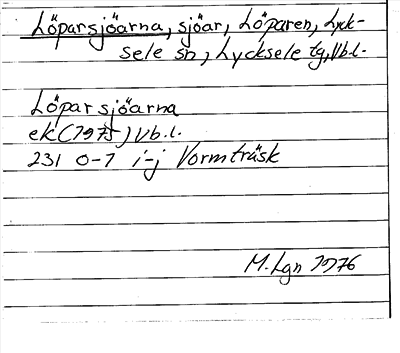 Löparsjöarna, sjöar, Löparen, Lyck-
sele sn, Lycksele tg, Vb.l.
Löparsjöarna
ek (1975) Vb.l.
231 0-1 i-j Vormträsk
M. Lgn 1976